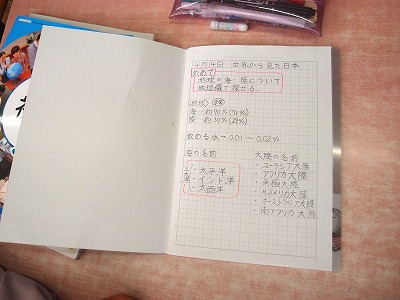 4月14日 世界から見た日本
めあて
地球の海・陸について
地球儀で探せる。
〈地球〉
海…約70%(71%)
陸…約30%(29%)
飲める水→0.01〜0.02%
海の名前
三大洋
・太平洋
・インド洋
・大西洋
大陸の名前
・ユーラシア大陸
・アフリカ大陸
・南極大陸
・北アメリカ大陸
・オーストラリア大陸
・南アフリカ大陸